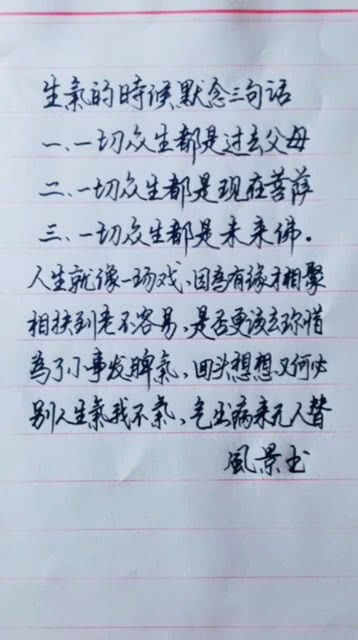 生氣的时候默念三句话
一、一切众生都是过去父母
二、一切众生都是现在菩萨
三、一切众生都是未来佛。
人生就像一场戏、因为有缘才相聚
相扶到老不容易、是否更该去珍惜
為了小事发脾氣、回头想想又何必
别人生氣我不氣、气出病来无人替
風景书